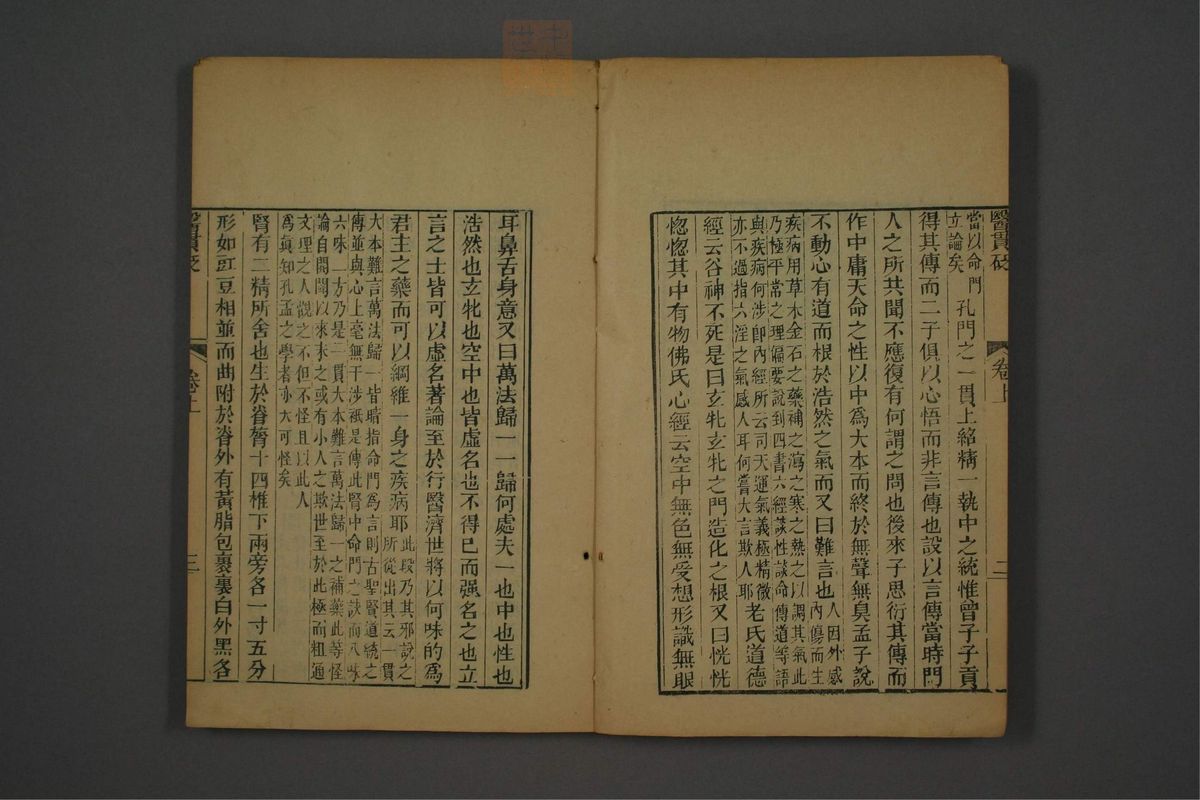 醫貫砭
卷上
二
當以命門
立論矣
孔門之一貫上紹精一執中之統惟曾子子貢
得其傳而二子俱以心悟而非言傳也設以言傳當時門
人之所共聞不應復有何謂之問也後來子思衍其傳而
作中庸天命之性以中為大本而終於無聲無臭孟子說
不動心有道而根於浩然之氣而又曰難言也
人因外感
內傷而生
疾病用草木金石之藥補之瀉之寒之熱之以調其氣此
乃極平常之理偏要說到四書六經談性談命傳道等語
與疾病何涉卽內經所云司天運氣義極精微
亦不過指六淫之氣感人耳何嘗大言欺人耶
老氏道德
經云谷神不死是曰玄牝玄牝之門造化之根又曰恍恍
惚惚其中有物佛氏心經云空中無色無受想形識無眼
耳鼻舌身意又曰萬法歸一一歸何處夫一也中也性也
浩然也玄牝也空中也皆虛名也不得已而强名之也立
言之士皆可以虛名著論至於行醫濟世將以何味的為
君主之藥而可以綱維一身之疾病耶
此段乃其邪說之
所從出其云一貫
大本難言萬法歸一皆暗指命門為言則古聖賢道統之
傳並與心上毫無干涉祇是傳此腎中命門之訣而八味
六味二方乃是一貫大本難言萬法歸一之補藥此等怪
論自開闢以來未之或有小人之欺世至於此極而粗通
文理之人觀之不但不怪且以此人
為眞知孔孟之學者亦大可怪矣
腎有二精所舍也生於脊膂十四椎下兩旁各一寸五分
形如豇豆相並而曲附於脊外有黃脂包裹裏白外黑各
醫貫砭
卷上
三